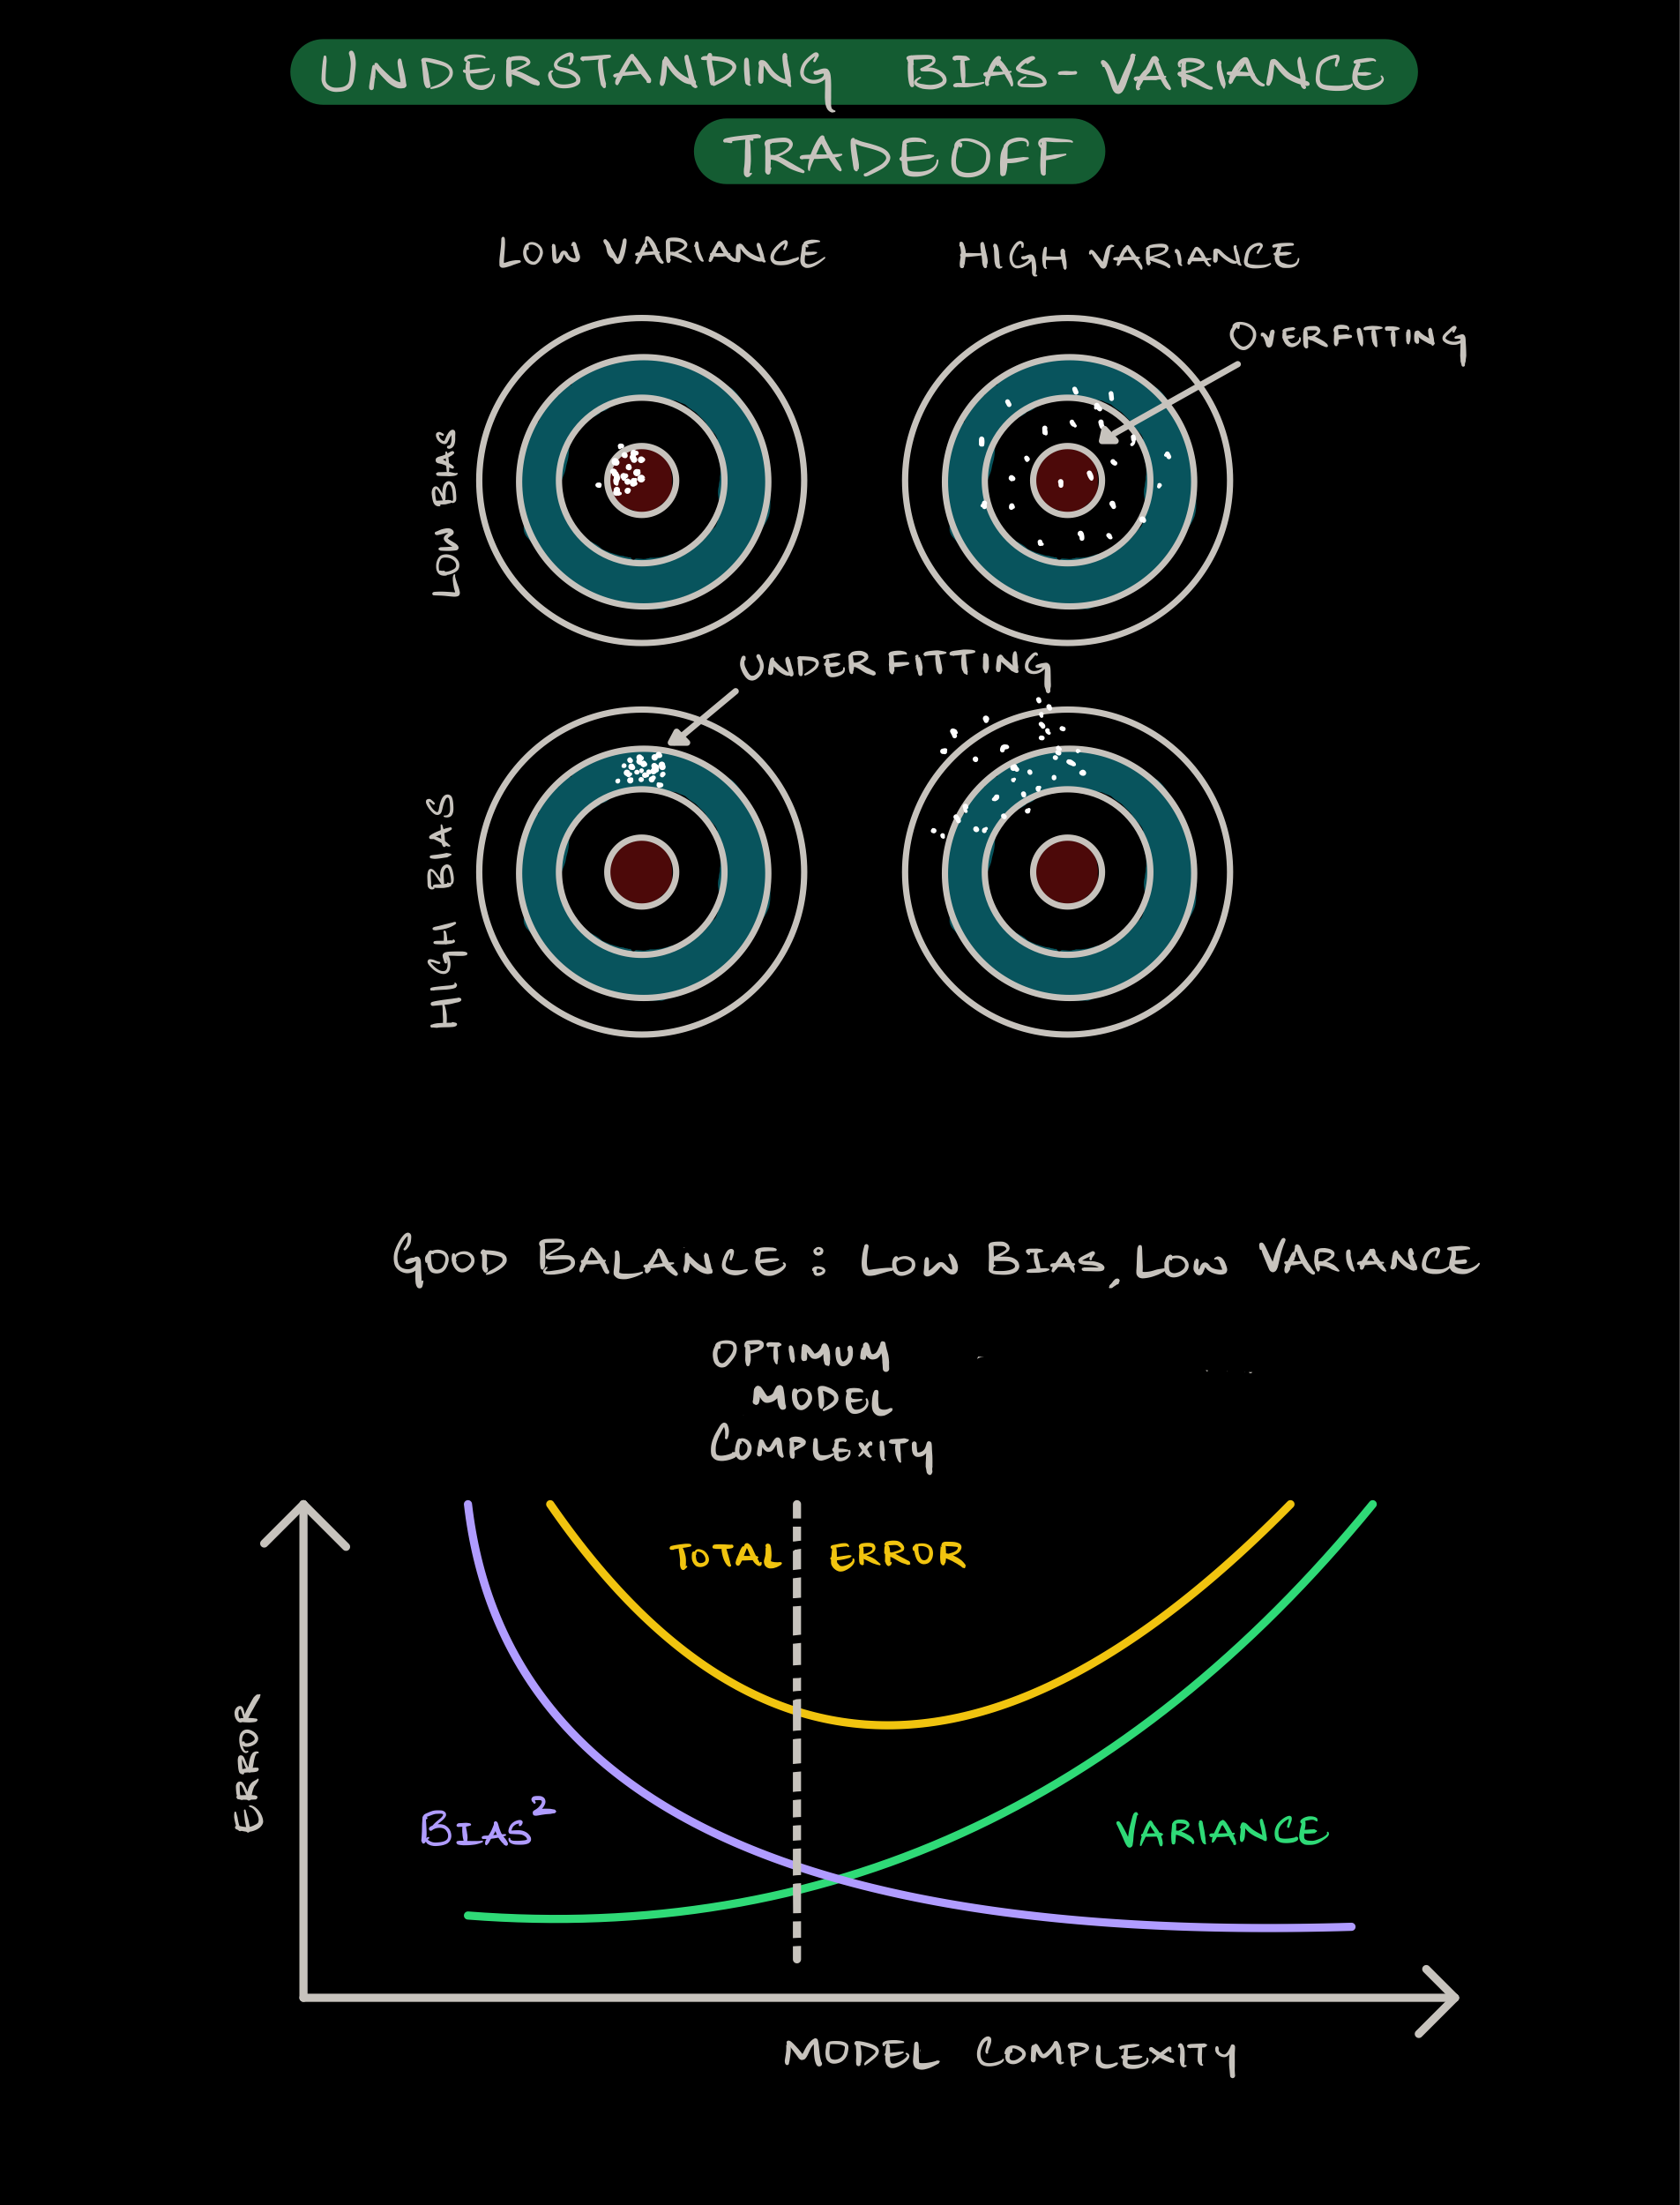 UNDERSTANDING BIAS-VARIANCE
TRADEOFF
LOW VARIANCE
HIGH VARIANCE
OVERFITTING
LOW BIAS
UNDERFITTING
HIGH BIAS
GOOD BALANCE: LOW BIAS, LOW VARIANCE
OPTIMUM
MODEL
COMPLEXITY
TOTAL ERROR
ERROR
BIAS²
VARIANCE
MODEL COMPLEXITY